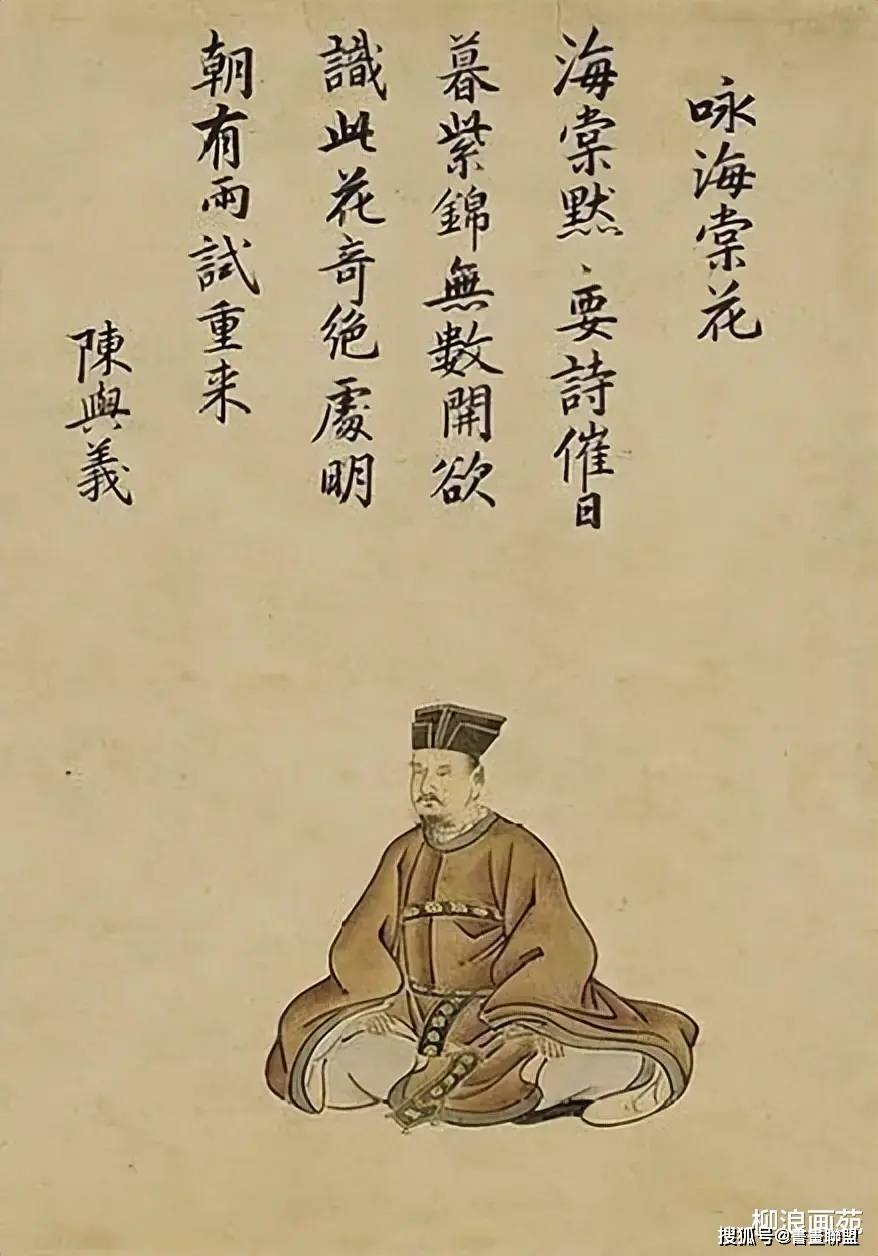 咏海棠花
海棠默〻要詩催日
暮紫錦無數開欲
識此花奇絶處明
朝有雨試重来
陳與義
柳浪画苑
搜狐号@書畫聯盟